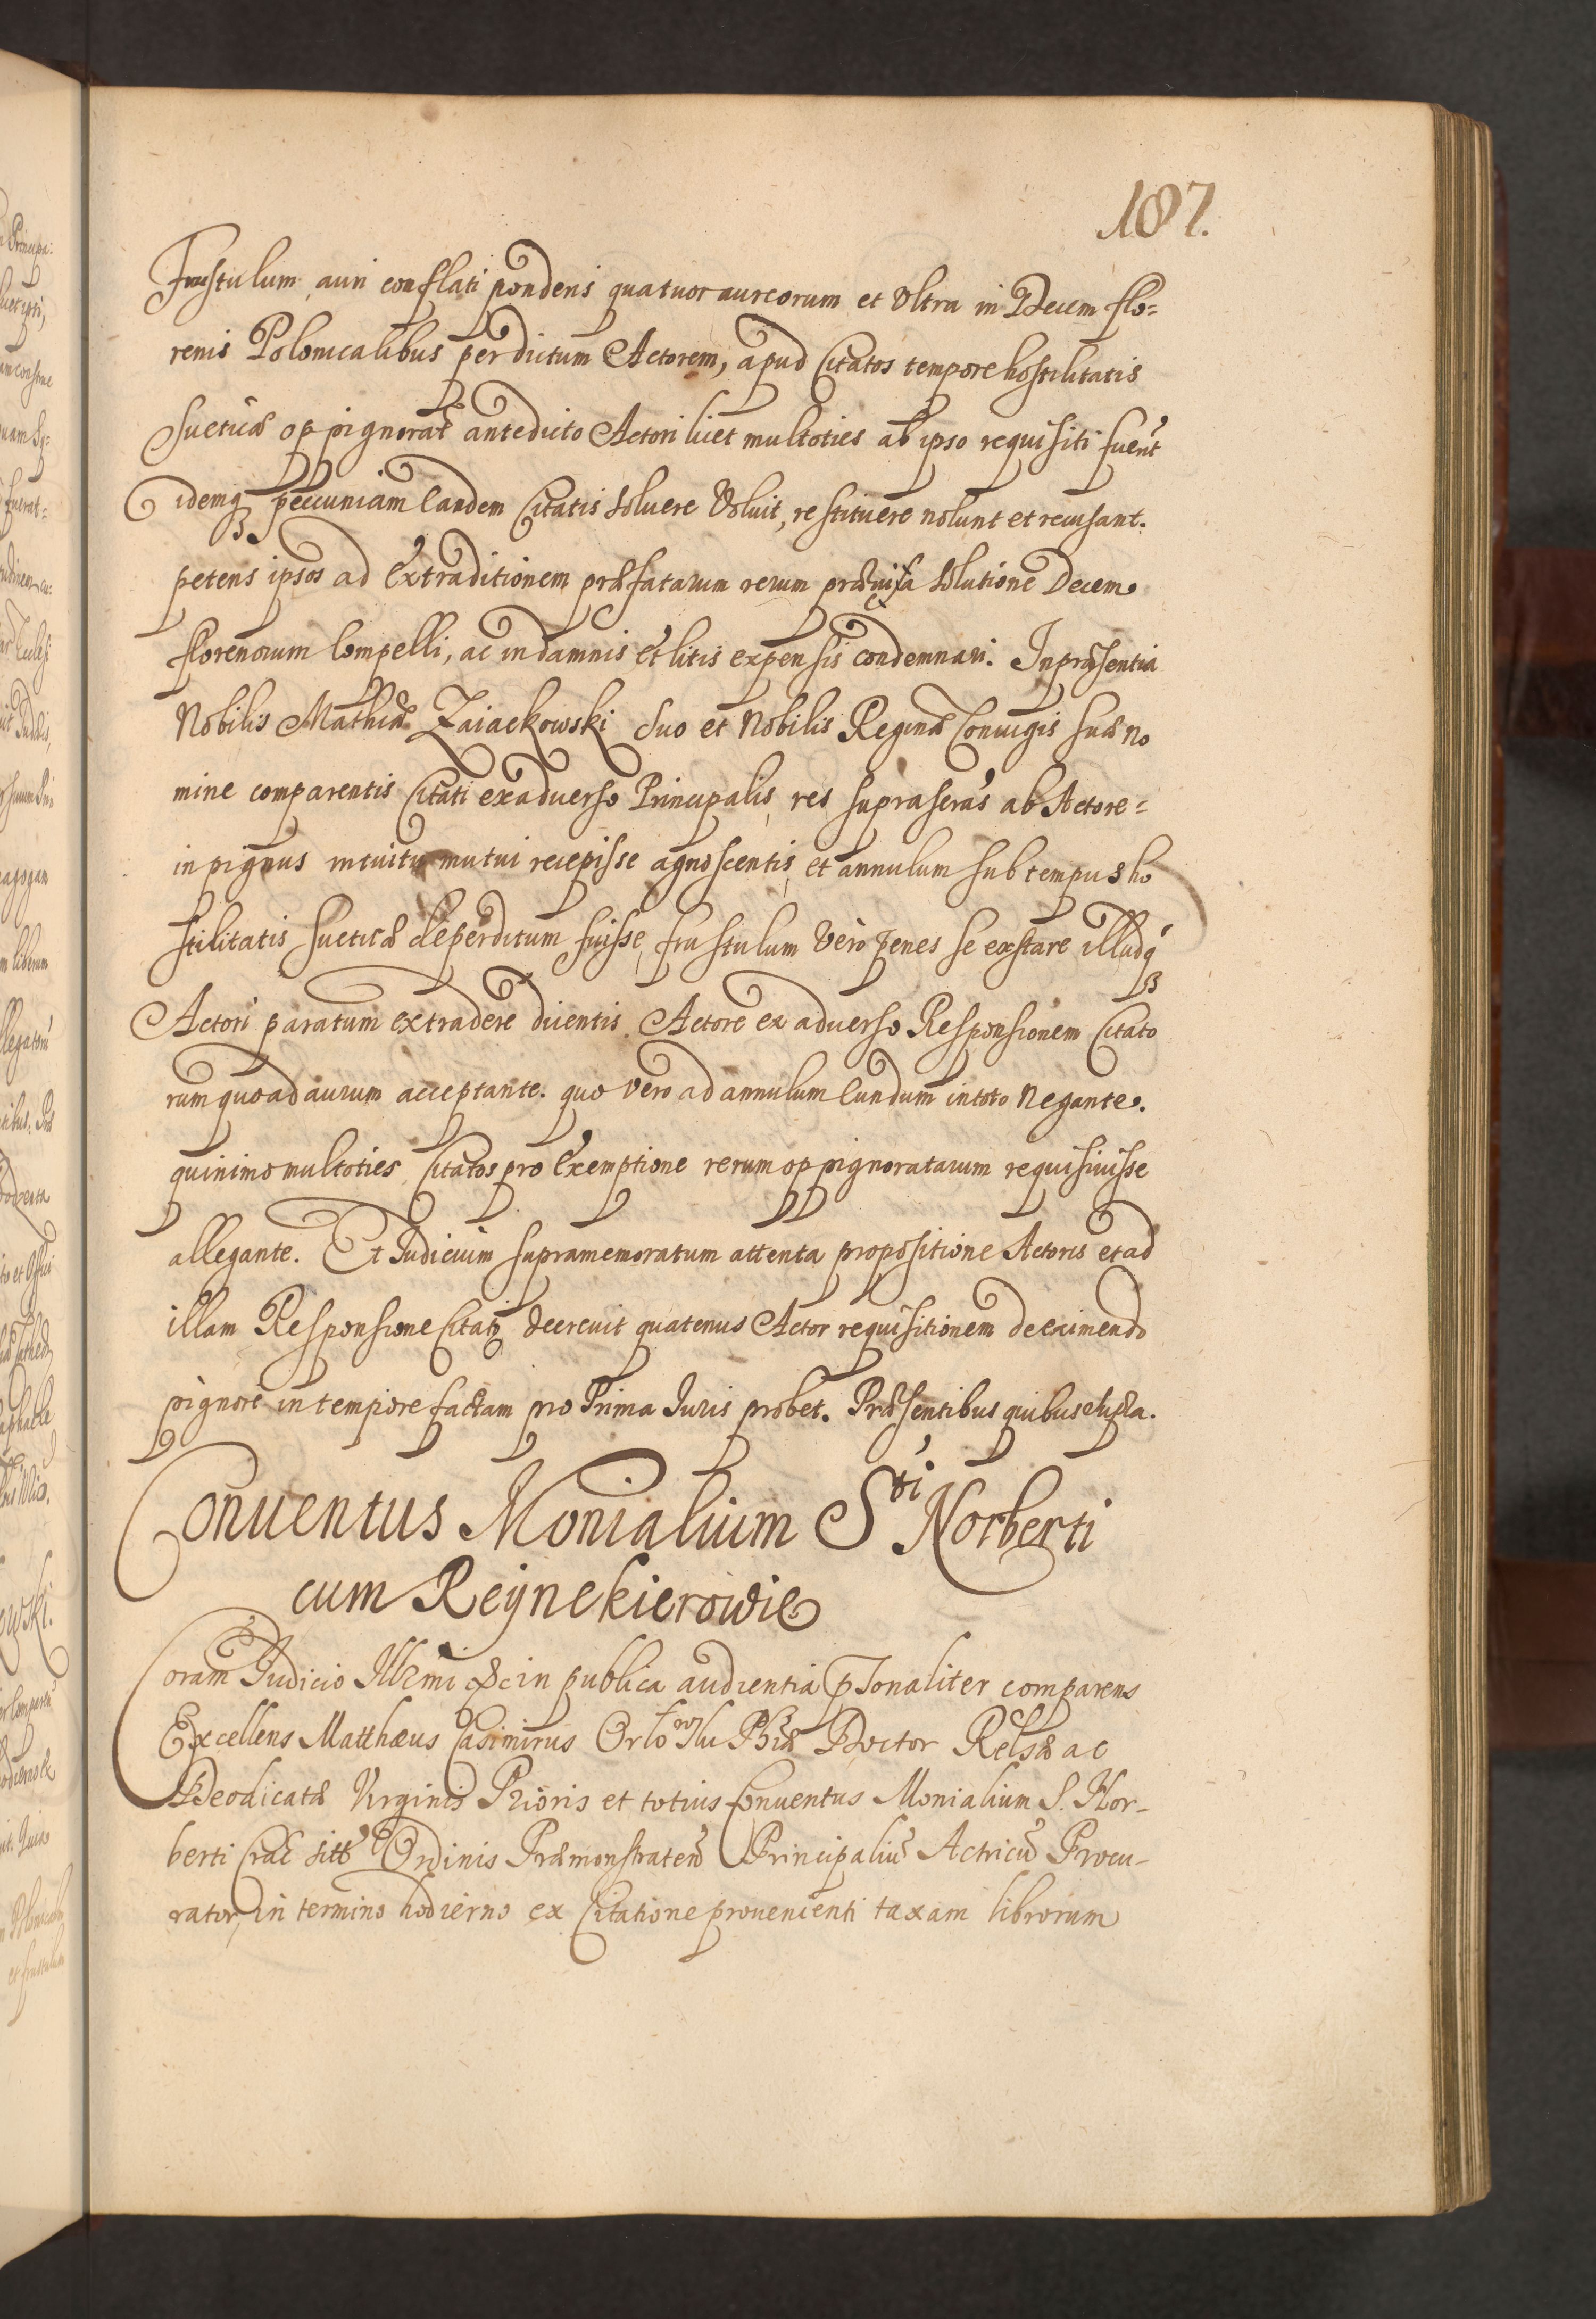 187.
Frustulum auri conflati ponderis quatuor aureorum et Vltra in Decem flo=
renis Polonicalibus per dictum Actorem, apud Citatos tempore hostilitatis
Sueticæ oppignorat antedicto Actori licet multoties ab ipso requisiti fuert
idemq peccuniam Eandem Citatis soluere Voluit, restituere nolunt et recusant.
petens ipsos ad Extraditionem præfatarum rerum præuisa solutione Decem
florenorum Compelli, ac in damnis et litis expensis condemnari. In præsentia
Nobilis Mathiæ Zaiackowski suo et Nobilis Reginæ Coniugis suæ no
mine comparentis Citati ex aduerso Principalis, res suprascras ab Actore=
in pignus intuitu mutui recepisse agnoscentis, et annulum sub tempus ho
stilitatis Sueticæ deperditum fuisse, frustulum Verò penes se exstare illudq
Actori paratum extradere dicentis. Actore ex aduerso Responsionem Citato
rum quo ad aurum acceptante. quo vero ad annulum Eundum in toto Negante.
quinimo multoties Citatos pro Exemptione rerum oppignoratarum requisiuisse
allegante. Et Iudicium supramemoratum attenta propositione Actoris et ad
illam Responsione Citati decreuit quatenus Actor requisitionem de eximendo
pignore in tempore factam pro Prima Iuris probet. Præsentibus quibus supra.
Conuentus Monialium S<sup>ti</sup> Norberti
cum Reÿnekierowic
Coram Iudicio Illmi &c in publica audientia psonaliter comparens
Excellens Matthæus Casimirus Phiæ Doctor Relsæ ac
Deodicatæ Virginis Prioris et totius Conuentus Monialium S. Nor-
berti Crac sitt Ordinis Præmonstraten Principaliu Actricu Procu-
rator, in termino hodierno ex Citatione prouenienti taxam librorum